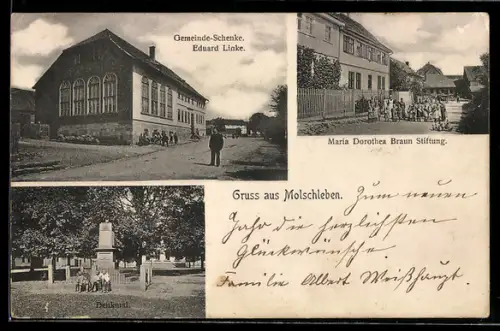 Gemeinde-Schenke.
Eduard Linke.
Maria Dorothea Braun Stiftung.
Gruss aus Molschleben.
Zum neuen
Jahr die herzlichsten
Glückwünsche.
Familie Albert Weißhaupt.
Denkmal.